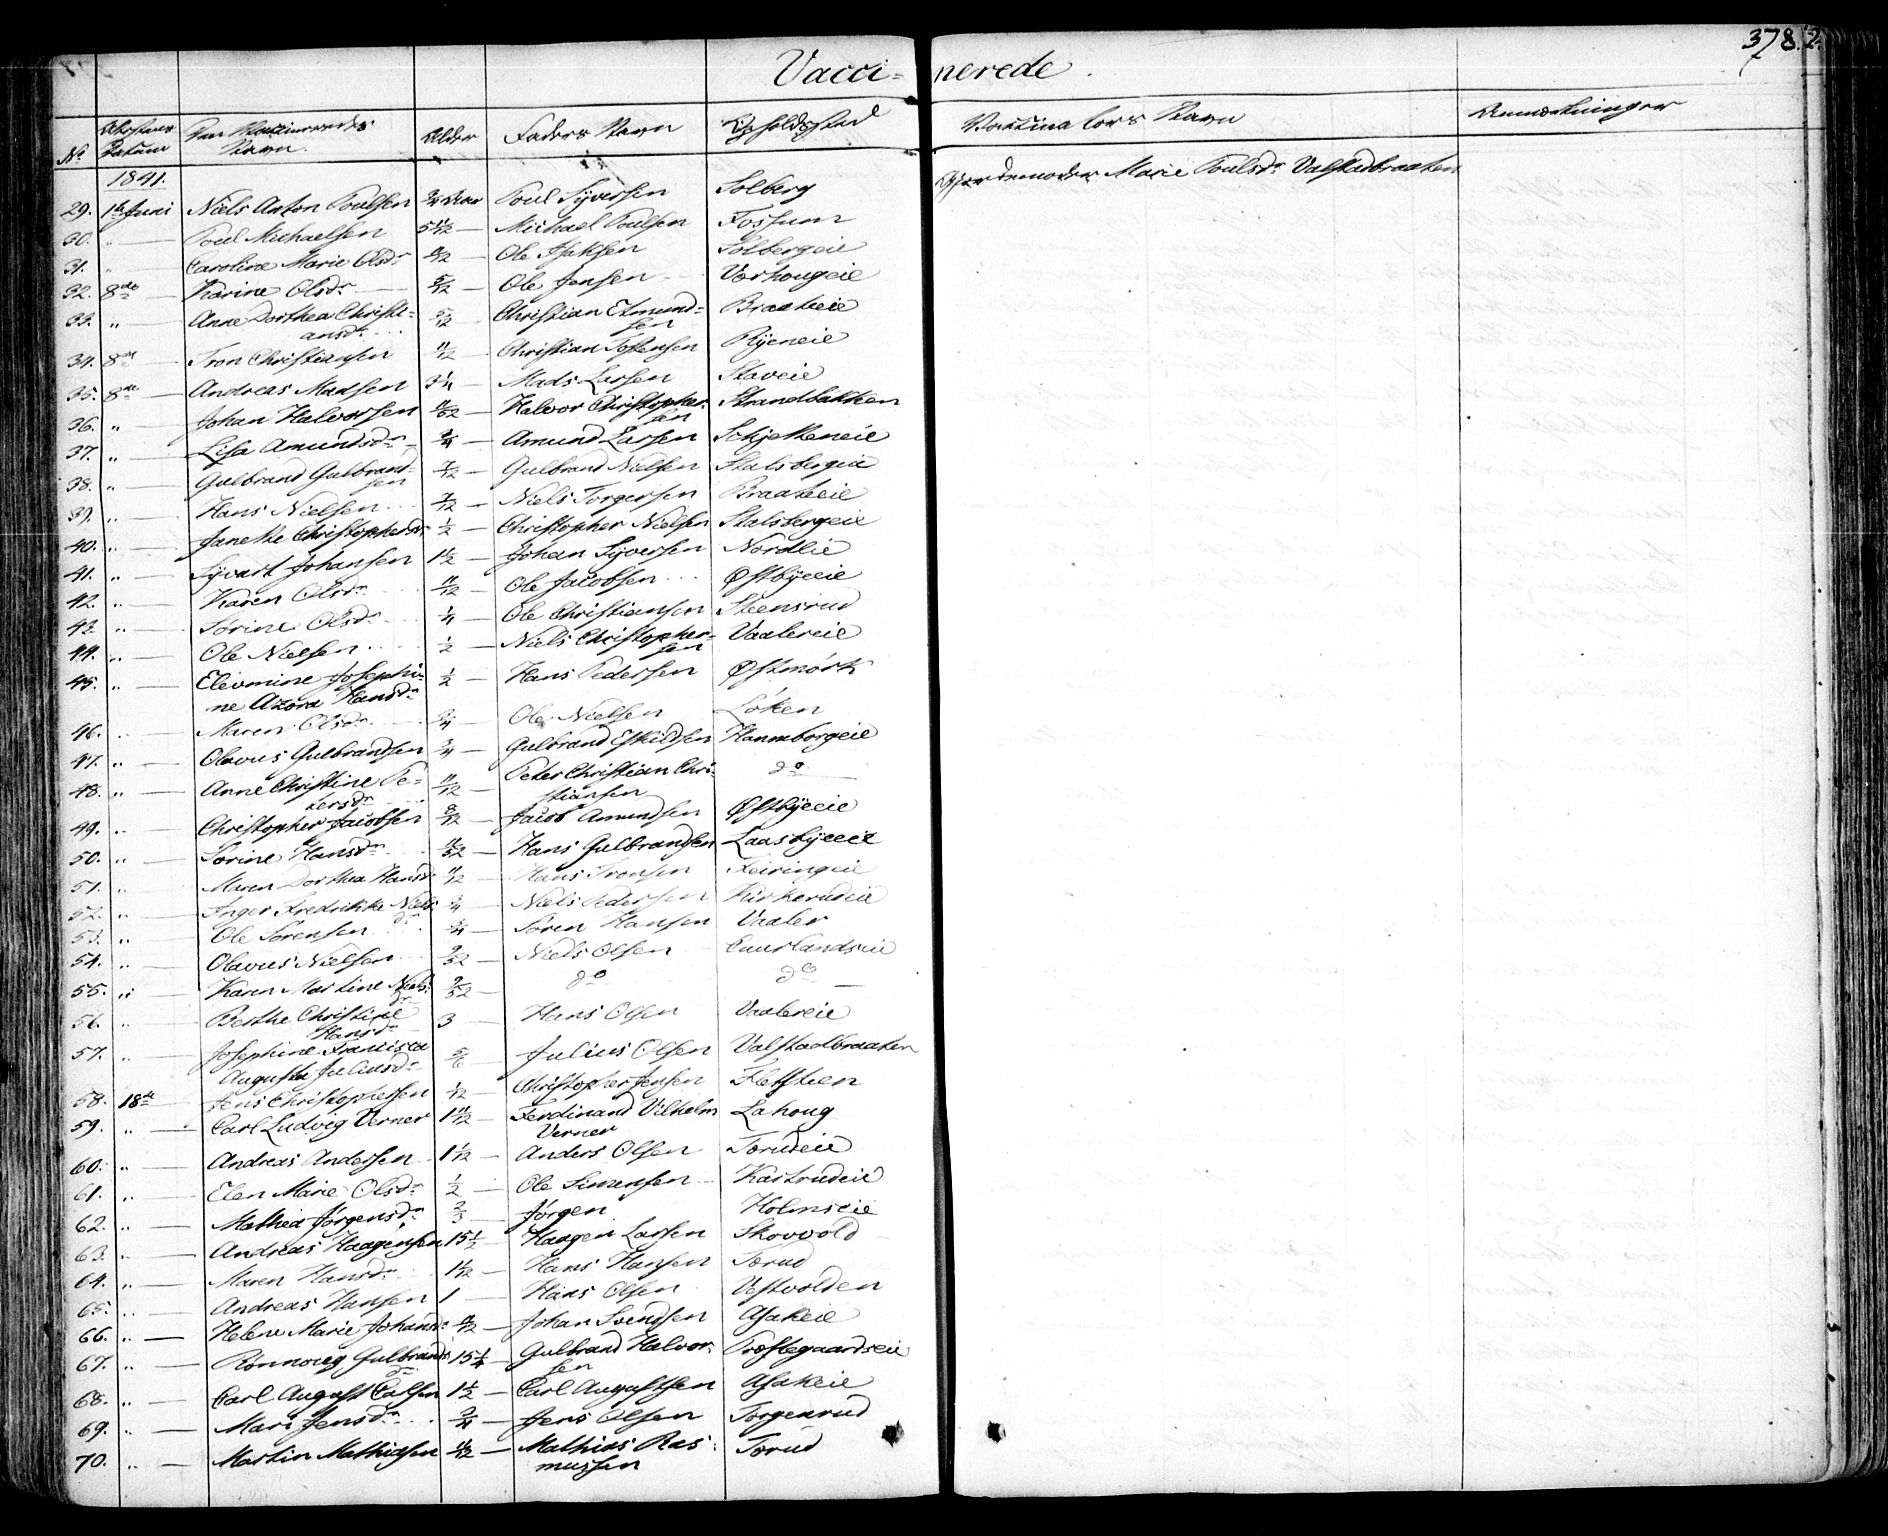 378. 2.
Vacci= nerede
No Attestens Datum Den Vaccineredes Navn. Alder Faders Navn Opholdssted Vaccinateurs Navn Anmærkninger
1841.
29. 1ste Juni Niels Anton Poulsen 3/4 Aar Poul Syversen Solberg Gjordemoder Marie Poulsdr Valstadbraaten
30. „ — Poul Michaelsen 5 11/12 — Michael Poulsen Fossum
31. „ — Caroline Marie Olsdr 8/12 — Ole Isaksen Solbergeie
32. 8de — Karine Olsdr 5/12 — Ole Jensen Vorhougeie
33. „ — Anne Dorthea Christi= 5/12 — Christian Edmund= Braateeie
ansdr sen
34. 8de — Tron Christiansen 11/12 — Christian Tostensen Ryeneie
35. 8de — Andreas Madsen 3 1/4 — Mads Larsen Staveie
36. „ — Johan Halvorsen 11/52 — Halvor Christopher= Strandbakken
sen
37. „ — Lisa Amundsdr 3/4 — Amund Larsen Schjetteneie
38. „ — Gulbrand Gulbrand= 7/12 — Gulbrand Nielsen Stalsbergeie
sen
39. „ — Hans Nielsen 7/12 — Niels Torgersen Braateeie
40. „ — Janette Christophersdr 1/2 — Christopher Nielsen Stalsbergeie
41. „ — Syvart Johansen 1 1/2 — Johan Syversen Nordlie
42. „ — Karen Olsdr 11/12 — Ole Jacobsen Østbyeeie
43. „ — Sørine Olsdr 1/4 — Ole Christiansen Steensrud
44. „ — Ole Nielsen 1/2 — Niels Christopher= Vaalereie
sen
45. „ — Elevmine Josephi= 1/2 — Hans Pedersen Østmørk
ne Azora Hansdr
46. „ — Maren Olsdr 3/4 Ole Nielsen Løken
47. „ — Olavus Gulbrandsen 3/4 — Gulbrand Eskildsen Hammborgeie
48. „ — Anne Christine Pe= 11/12 — Peter Christian Chri= do —
tersdr stiansen
49. „ — Christopher Jacobsen 8/12 — Jacob Amundsen Østbyeeie
50. „ — Sørine Hansdr 11/52 — Hans Gulbrandsen Laasbyeeie
51. „ Maren Dorthea Hansdr 11/12 — Hans Tronsen Feiringeie
52. „ — Inger Fredrikke Niels 3/4 — Niels Pedersen Kirkerudeie
dr
53. „ Ole Sørensen 3/4 — Søren Hansen Vaaler
54. „ — Olavus Nielsen 9/52 — Niels Olsen Cuurlandseie
55. „ — Karen Martine Niels 9/52 — do do —
dr
56. „ Berthe Christine 3 — Hans Olsen Vaalereie
Hansdr
57. „ Josephine Francisca 5/6 — Julius Olsen Valstadbraaten
Augusta Juliusdr
58. 18de — Jens Christophersen 1/12 — Christopher Jensen Fletsteen
59. „ — Carl Ludvig Verner 1 11/12 — Ferdinand Vilhelm Lahoug
Verner
60. „ — Andreas Andersen 1 1/12 — Anders Olsen Tærudeie
61. „ — Elen Marie Olsdr 1/2 — Ole Simensen Kastrudeie
62. „ — Mathea Jørgensdr 2/3 — Jørgen Holmseie
63. „ — Andreas Haagensen 15 1/2 — Haagen Larsen Skovvold
64. „ — Maren Hansdr 1 1/12 — Hans Hansen Tærud
65. „ — Andreas Hansen 1 — Hans Olsen Vestvolden
66. „ — Helene Marie Johansdr 8/12 — Johan Svendsen Asakeie
67. „ — Rønnoug Gulbrands 15 1/4 — Gulbrand Halvor= Præstegaardseie
dr sen
68. „ — Carl August Calsen 1 1/2 — Carl Augustsen Asakeie
69. „ — Mari Jensdr 3/4 — Jens Olsen Torgenrud
70. „ — Martin Mathiasen — Mathias Ras= Tærud
mussen